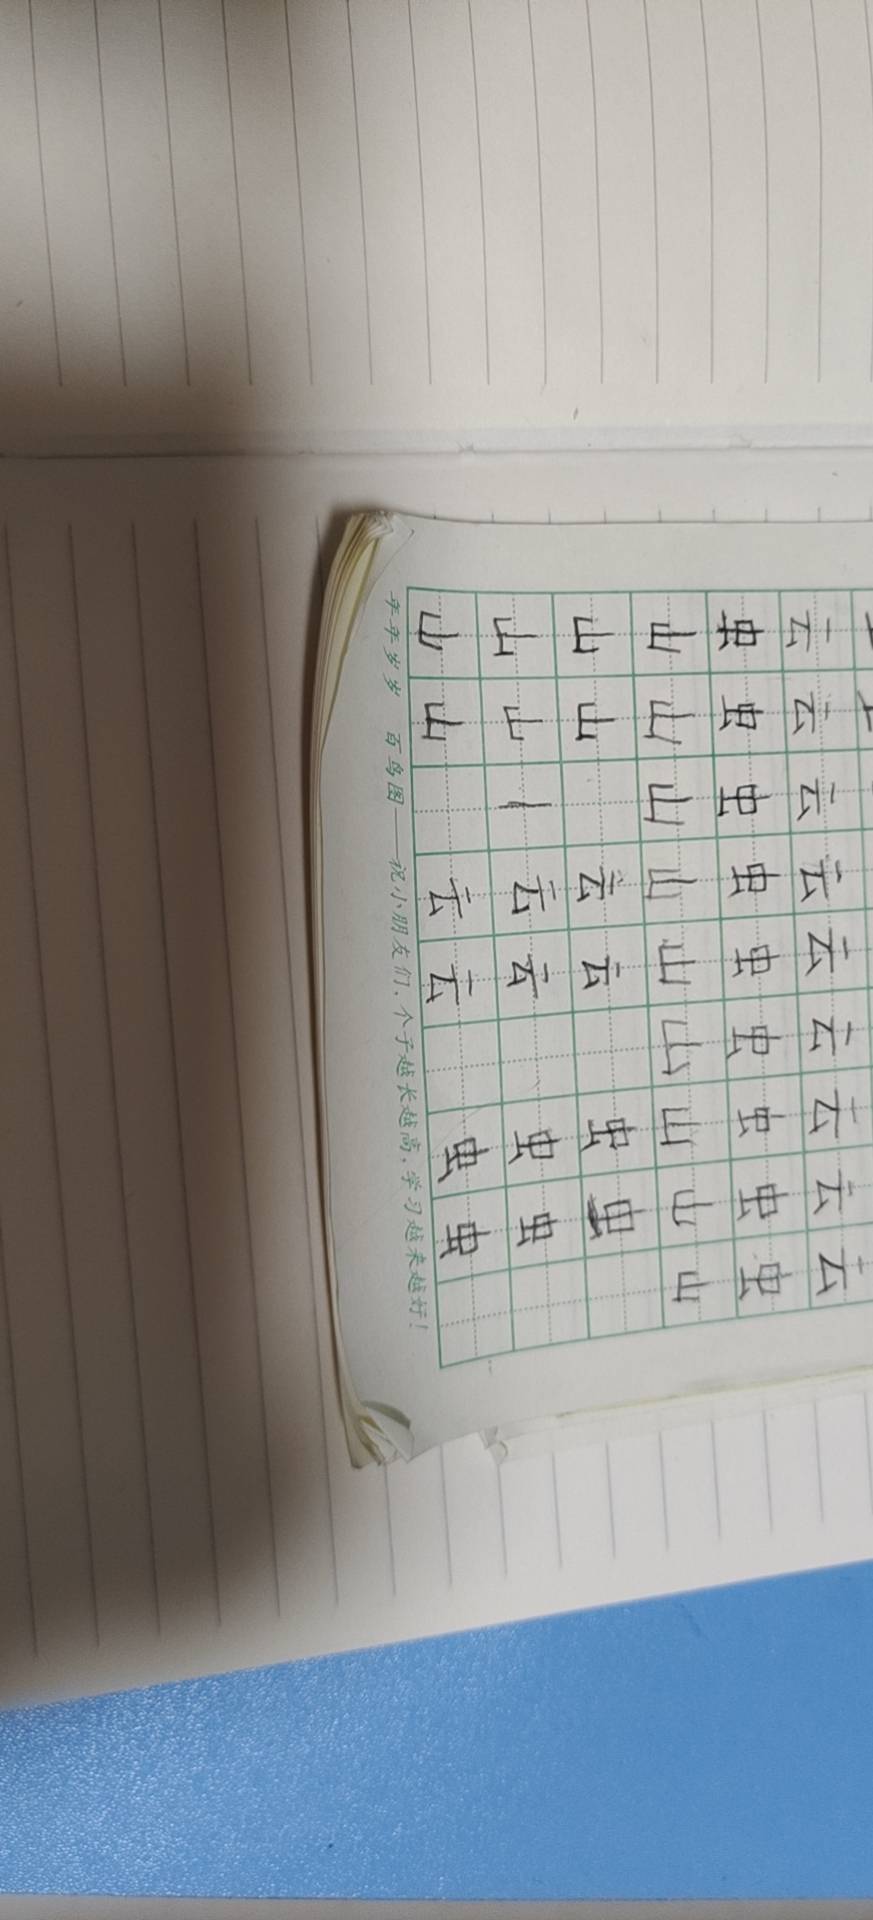 云云云云云云云云云
虫虫虫虫虫虫虫虫虫
山山山山山山山山山
山山 云云 虫虫
山山丨云云 虫虫
山山 云云 虫虫
年年岁岁 百鸟图——祝小朋友们，个子越长越高，学习越来越好！